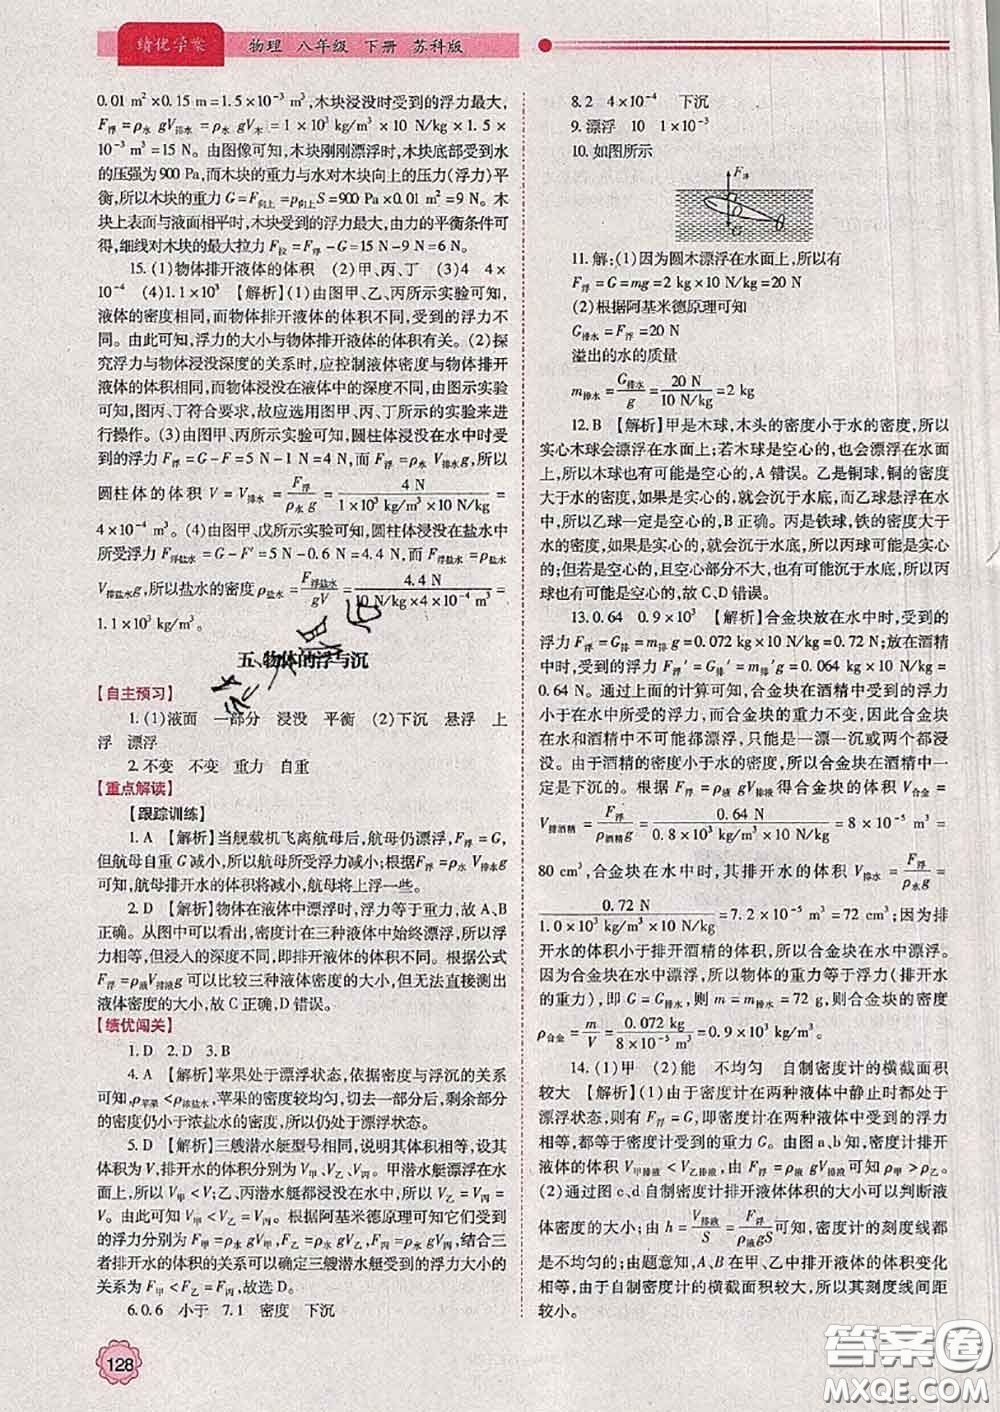 绩优学案 物理 八年级 下册 苏科版
0.01 m²×0.15 m=1.5×10⁻³ m³,木块浸没时受到的浮力最大,
F浮=ρ水 gV排水=ρ水 gV木=1×10³ kg/m³×10 N/kg×1.5
×10⁻³ m³=15 N。由图像可知,木块刚刚漂浮时,木块底部受到水
的压强为900 Pa,而木块的重力与水对木块向上的压力(浮力)平
衡,所以木块的重力 G=F向上=p向上S=900 Pa×0.01 m²=9 N。木
块上表面与液面相平时,木块受到的浮力最大,由力的平衡条件可
得,细线对木块的最大拉力 F拉=F浮-G=15 N-9 N=6 N。
15. (1)物体排开液体的体积 (2)甲、丙、丁 (3)4 4×
10⁻⁴ (4)1.1×10³ 【解析】(1)由图甲、乙、丙所示实验可知,
液体的密度相同,而物体排开液体的体积不同,受到的浮力不
同。由此可知,浮力的大小与物体排开液体的体积有关。(2)探
究浮力与物体浸没深度的关系时,应控制液体密度与物体排开
液体的体积相同,而物体浸没在液体中的深度不同,由图示实验
可知,图丙、丁符合要求,故应选用图甲、丙、丁所示的实验来进
行操作。(3)由图甲、丙可知,圆柱体浸没在水中时受
到的浮力 F浮=G-F=5 N-1 N=4 N。而 F浮=ρ水 gV排水,所以
圆柱体的体积 V=V排水=F浮/ρ水 g=4 N/1×10³ kg/m³×10 N/kg=
4×10⁻⁴ m³。(4)由图甲、戊所示实验可知,圆柱体浸没在盐水中
所受浮力 F浮盐水=G-F′=5 N-0.6 N=4.4 N,而 F浮盐水=ρ盐水
V排盐水g,所以盐水的密度 ρ盐水=F浮盐水/gV=4.4 N/10 N/kg×4×10⁻⁴ m³=
1.1×10³ kg/m³。
五、物体的浮与沉
【自主预习】
1. (1)液面 一部分 浸没 平衡 (2)下沉 悬浮 上
浮 漂浮
2. 不变 不变 重力 自重
【重点解读】
【跟踪训练】
1. A 【解析】当舰载机飞离航母后,航母仍漂浮,F浮=G,
但航母自重 G 减小,所以航母所受浮力减小;根据F浮=ρ水 V排水g
可知,航母排开水的体积将减小,航母将上浮一些。
2. D 【解析】物体在液体中漂浮时,浮力等于重力,故 A、B
正确。从图中可以看出,密度计在三种液体中始终漂浮,受浮力
相等,但浸入的深度不同,即排开液体的体积不同。根据公式
F浮=ρ液V排液g 可以比较三种液体密度的大小,但无法直接测出
液体密度的大小,故 C 正确,D 错误。
【绩优闯关】
1. D 2. D 3. B
4. A 【解析】苹果处于漂浮状态,依据密度与浮沉的关系
可知,ρ苹果<ρ浓盐水,苹果的密度较均匀,切去一部分后,剩余部分
密度仍小于浓盐水的密度,所以仍处于漂浮状态。
5. D 【解析】三艘潜水艇型号相同,说明其体积相等,设其
体积为 V,排开水的体积分别为 V甲、V乙、V丙。甲潜水艇漂浮在水
面上,所以 V甲<V;乙、丙潜水艇都浸没在水中,所以 V乙=V丙=
V。由此可知 V甲<V乙=V丙。根据阿基米德原理可知它们受到
的浮力分别为 F甲=ρ水 gV甲,F乙=ρ水 gV乙,F丙=ρ水 gV丙,结合三
者排开水的体积的关系可以确定三艘潜水艇所受浮力大小的
关系为 F甲<F乙=F丙,故选 D。
6. 0.6 小于 7. 1 密度 下沉
128
8. 2 4×10⁻⁴ 下沉
9. 漂浮 10 1×10⁻³
10. 如图所示
F浮
G
11. 解:(1)因为圆木漂浮在水面上,所以有
F浮=G=mg=2 kg×10 N/kg=20 N
(2)根据阿基米德原理可知
G排水=F浮=20 N
溢出的水的质量
m排水=G排水/g=20 N/10 N/kg=2 kg
12. B 【解析】甲是木球,木头的密度小于水的密度,所以
实心木球会漂浮在水面上;若木球是空心的,也会漂浮在水面
上,所以木球也有可能是空心的,A 错误。乙是铜球,铜的密度
大于水的密度,如果是实心的,就会沉于水底,而乙球悬浮在水
中,所以乙球一定是空心的,B 正确。丙是铁球,铁的密度大于
水的密度,如果是实心的,就会沉于水底,所以丙球可能是实心
的;但若是空心的,且空心部分不够大,也会沉于水底,所以丙
球也有可能是空心的,故 C、D 错误。
13. 0.64 0.9×10³ 【解析】合金块放在水中时,受到的
浮力 F浮=G排=m排 g=0.072 kg×10 N/kg=0.72 N;放在酒精
中时,受到的浮力 F浮′=G排′=m排′g=0.064 kg×10 N/kg=
0.64 N。通过上面的计算可知,合金块在酒精中所受的浮力
小于在水中所受的浮力,而合金块的重力不变,因此合金块
在水和酒精中不可能都漂浮,只能是一漂一沉或两个都浸
没。由于酒精的密度小于水的密度,所以合金块在酒精中一
定是下沉的。根据 F浮=ρ液 gV排液得合金块的体积 V合金=
V排酒精=F浮/ρ酒精g=0.64 N/0.8×10³ kg/m³×10 N/kg=8×10⁻⁵ m³=
80 cm³,合金块在水中时,其排开水的体积 V排水=F浮/ρ水g=
0.72 N/1.0×10³ kg/m³×10 N/kg=7.2×10⁻⁵ m³=72 cm³;因为排
开水的体积小于排开酒精的体积,所以合金块在水中漂浮。
因为合金块在水中漂浮,所以物体的重力等于浮力(排开水
的重力),即 G=G排水,则 m=m排水=72 g,则合金块的密度
ρ合金=m/V=0.072 kg/8×10⁻⁵ m³=0.9×10³ kg/m³。
14. (1)甲 (2)能 不均匀 自制密度计的横截面积
较大 【解析】(1)由于密度计在两种液体中静止时都处于
漂浮状态,则有 F浮=G,即密度计在两种液体中受到的浮力
相等,都等于密度计受到的重力 G。由图a、b知,密度计排开
液体的体积 V甲排液<V乙排液,由 F浮=ρ液 gV排液可知 ρ甲>ρ乙。
(2)通过图 c、d 自制密度计排开液体体积的大小可以判断液
体密度的大小;由 h=V排液/S=F浮/ρ液gS可知,密度计的刻度线都
是不均匀的;由题意知,A、B 在甲、乙中排开液体的体积变化
相等,由于自制密度计的横截面积较大,所以其刻度线间距
较小。
答案圈
MXQE.COM